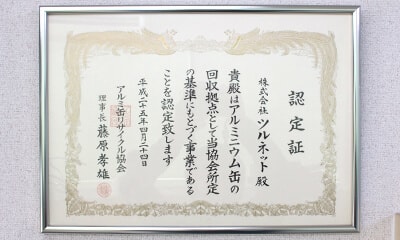 認定証
株式会社ツルネット殿
貴殿はアルミニウム缶の
回収拠点として当協会所定
の基準にもとづく事業である
ことを認定致します
平成二十五年四月二十四日
アルミ缶リサイクル協会
理事長 藤原孝雄